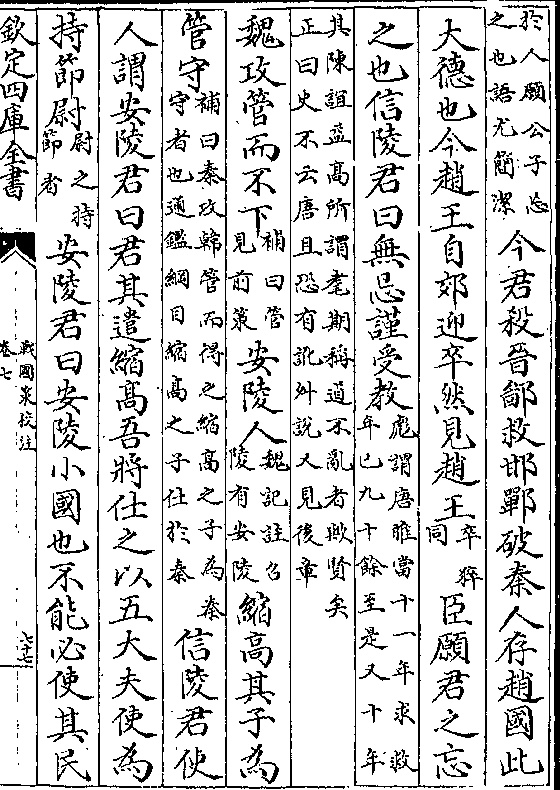 於人願公子忘
之也語尤簡潔
今君殺晉鄙救邯鄲破秦人存趙國此
大德也今趙王自郊迎卒然見趙王
卒猝
同
臣願君之忘
之也信陵君曰無忌謹受教
彪謂唐雎當十一年求救
年已九十餘至是又十年
其陳誼益高所謂耄期稱道不亂者歟賢矣
正曰史不云唐且恐有訛舛說又見後章
魏攻管而不下
補曰管
見前策
安陵人
魏記註召
陵有安陵
縮高其子為
管守
補曰秦攻韓管而得之縮高之子為秦
守者也通鑑綱目縮高之子仕於秦
信陵君使
人謂安陵君曰君其遣縮高吾將仕之以五大夫使為
持節尉
尉之持
節者
安陵君曰安陵小國也不能必使其民
欽定四庫全書
戰國策校注
卷七
七十七